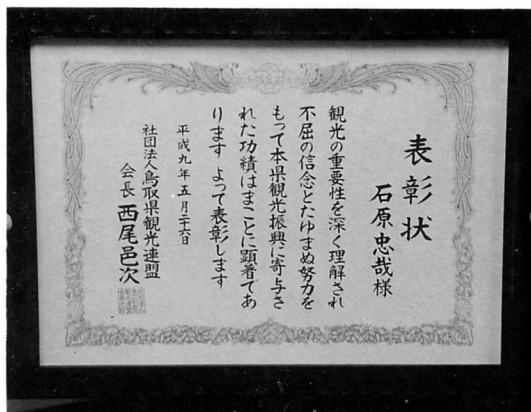 表彰状
石原忠哉様
観光の重要性を深く理解され
不屈の信念とたゆまぬ努力を
もって本県観光振興に寄与さ
れた功績はまことに顕著であ
ります よって表彰します
平成九年五月二十六日
社団法人鳥取県観光連盟
会長 西尾邑次